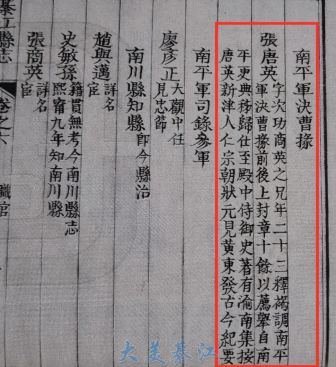 南平軍決曹掾
張唐英
字次功商英之兄年二十三釋褐調南平
軍決曹掾前後上封章十餘以薦舉自南
平更典秭歸仕至殿中侍御史著有渝南集按
唐英新津人仁宗朝狀元見黃東發古今紀要
南平軍司錄參軍
廖彥正
大觀中任
見忠節
南川縣知縣
即今縣治
趙與邁
詳名
宦
史敏孫
籍貫無考今南川縣志
熙甯九年知南川縣
張商英
詳名
宦
綦江縣志
卷之六
職官
大美綦江